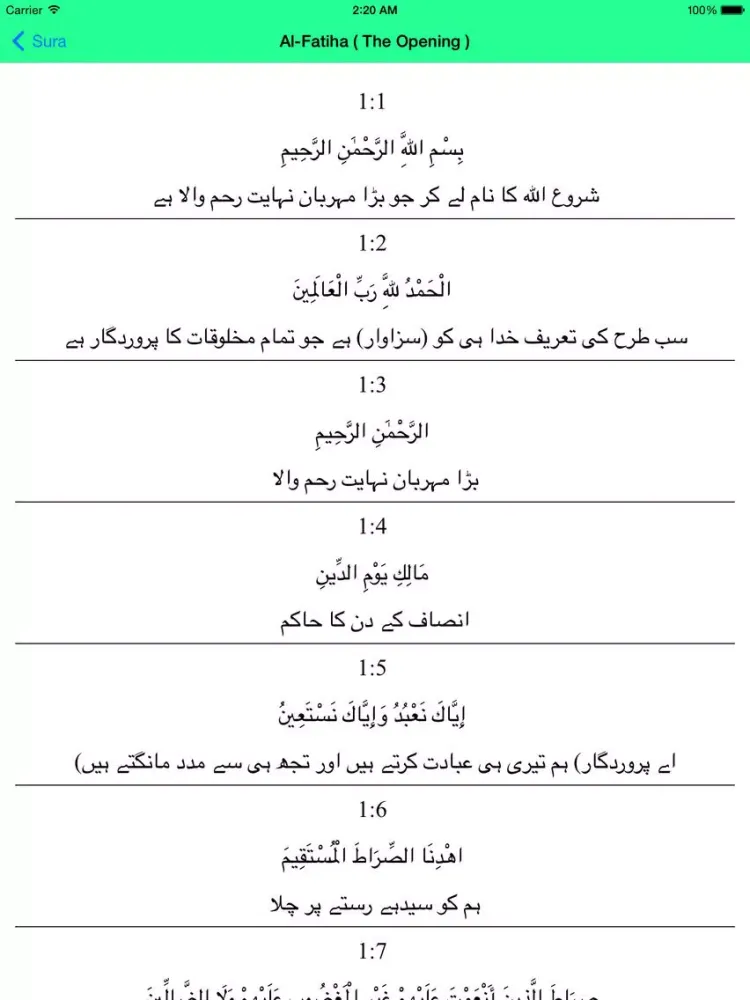 Carrier 2:20 AM 100%
Sura Al-Fatiha ( The Opening )
1:1
بِسْمِ اللَّهِ الرَّحْمَٰنِ الرَّحِيمِ
شروع الله کا نام لے کر جو بڑا مہربان نہایت رحم والا ہے
1:2
الْحَمْدُ لِلَّهِ رَبِّ الْعَالَمِينَ
سب طرح کی تعریف خدا ہی کو (سزاوار) ہے جو تمام مخلوقات کا پروردگار ہے
1:3
الرَّحْمَٰنِ الرَّحِيمِ
بڑا مہربان نہایت رحم والا
1:4
مَالِكِ يَوْمِ الدِّينِ
انصاف کے دن کا حاکم
1:5
إِيَّاكَ نَعْبُدُ وَإِيَّاكَ نَسْتَعِينُ
اے پروردگار) ہم تیری ہی عبادت کرتے ہیں اور تجھ ہی سے مدد مانگتے ہیں)
1:6
اهْدِنَا الصِّرَاطَ الْمُسْتَقِيمَ
ہم کو سیدہے رستے پر چلا
1:7
صِرَاطَ الَّذِينَ أَنْعَمْتَ عَلَيْهِمْ غَيْرِ الْمَغْضُوبِ عَلَيْهِمْ وَلَا الضَّالِّينَ